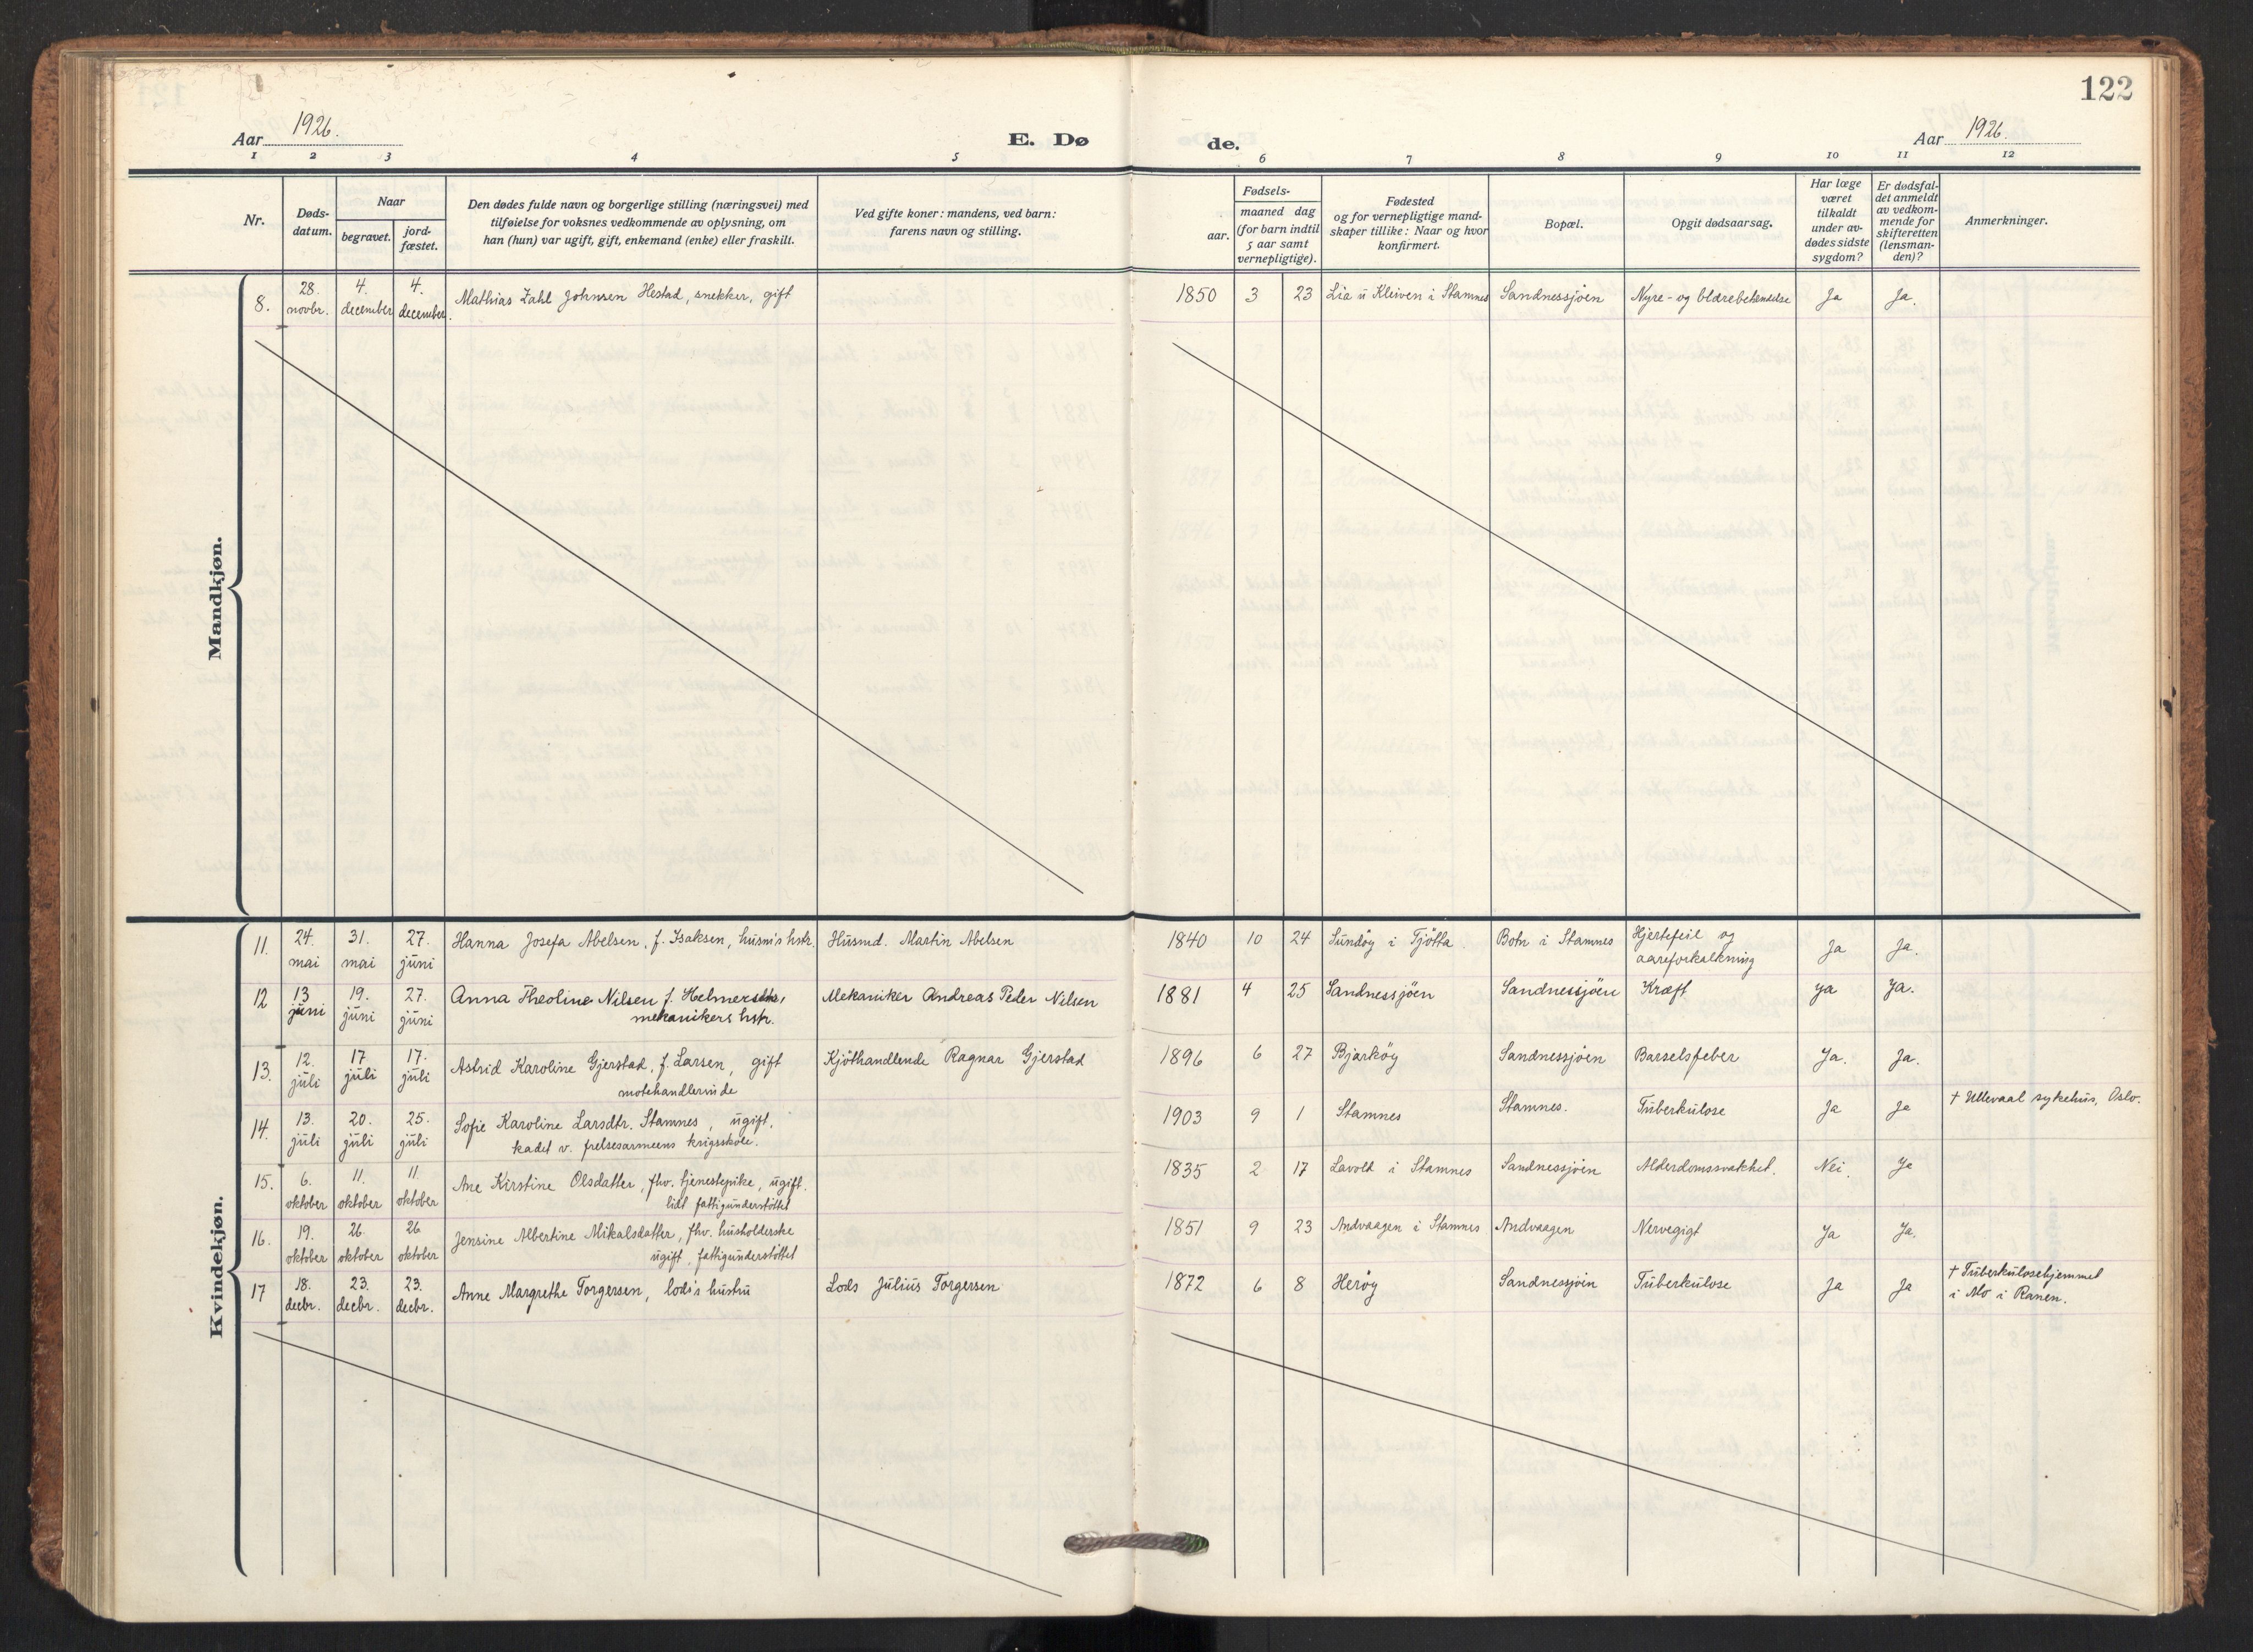 122
Aar 1926.
E. Dø
de.
Aar 1926.
1 2 3 4 5 6 7 8 9 10 11 12
Nr.
Døds-
datum.
Naar
begravet.
jord-
fæstet.
Den dødes fulde navn og borgerlige stilling (næringsvei) med
tilføielse for voksnes vedkommende av oplysning, om
han (hun) var ugift, gift, enkemand (enke) eller fraskilt.
Ved gifte koner: mandens, ved barn:
farens navn og stilling.
Fødsels-
aar.
maaned dag
(for barn indtil
5 aar samt
vernepligtige).
Fødested
og for vernepligtige mand-
skaper tillike: Naar og hvor
konfirmert.
Bopæl.
Opgit dødsaarsag.
Har læge
været
tilkaldt
under av-
dødes sidste
sygdom?
Er dødsfal-
det anmeldt
av vedkom-
mende for
skifteretten
(lensman-
den)?
Anmerkninger.
Mandkjøn.
8. 28. novbr. 4. december 4. december. Mathias Zahl Johnsen Hestad, snekker, gift 1850 3 23 Lia u Kleiven i Stamnes Sandnessjøen Nyre- og blærebetendelse Ja Ja.
Kvindekjøn.
11. 24. mai 31. mai 27. juni Hanna Josefa Abelsen, f. Isaksen, husm's hstr. Husmd. Martin Abelsen 1840 10 24 Sundöy i Tjötta. Botn i Stamnes Hjertefeil og
aareforkalkning Ja Ja.
12 13 juni 19. juni 27. juni Anna Theoline Nilsen f. Helmersen,
mekanikers hstr. Mekaniker Andreas Peder Nilsen 1881 4 25 Sandnessjöen Sandnessjöen Kræft ja Ja.
13. 12. juli 17. juli 17. juli Astrid Karoline Gjerstad, f. Larsen, gift
motehandlerinde Kjöthandlende Ragnar Gjerstad 1896 6 27 Bjarköy Sandnessjöen Barselsfeber Ja. Ja.
14. 13. juli 20. juli 25. juli Sofie Karoline Larsdtr. Stamnes, ugift.
kadet v. frelsesarmeens krigsskole. 1903 9 1 Stamnes Stamnes. Tuberkulose Ja Ja † Ullevaal sykehus, Oslo.
15. 6. oktober 11. oktober 11 oktober Ane Kirstine Olsdatter, fhv. tjenestepike, ugift.
lidt fattigunderstöttet 1835 2 17 Lavold i Stamnes Sandnessjöen Alderdomssvakhet. Nei. Ja
16. 19. oktober 26. oktober 26 oktober Jensine Albertine Mikalsdatter, fhv. husholderske
ugift, fattigunderstöttet 1851 9 23 Andvaagen i Stamnes Andvaagen Nervegigt Ja Ja.
17 18. decbr. 23. decbr. 23. decbr. Anne Margrethe Torgersen, lods's hustru Lods Julius Torgersen 1872 6 8 Heröy Sandnessjöen Tuberkulose Ja Ja † Tuberkulosehjemmet
i Mo i Ranen.